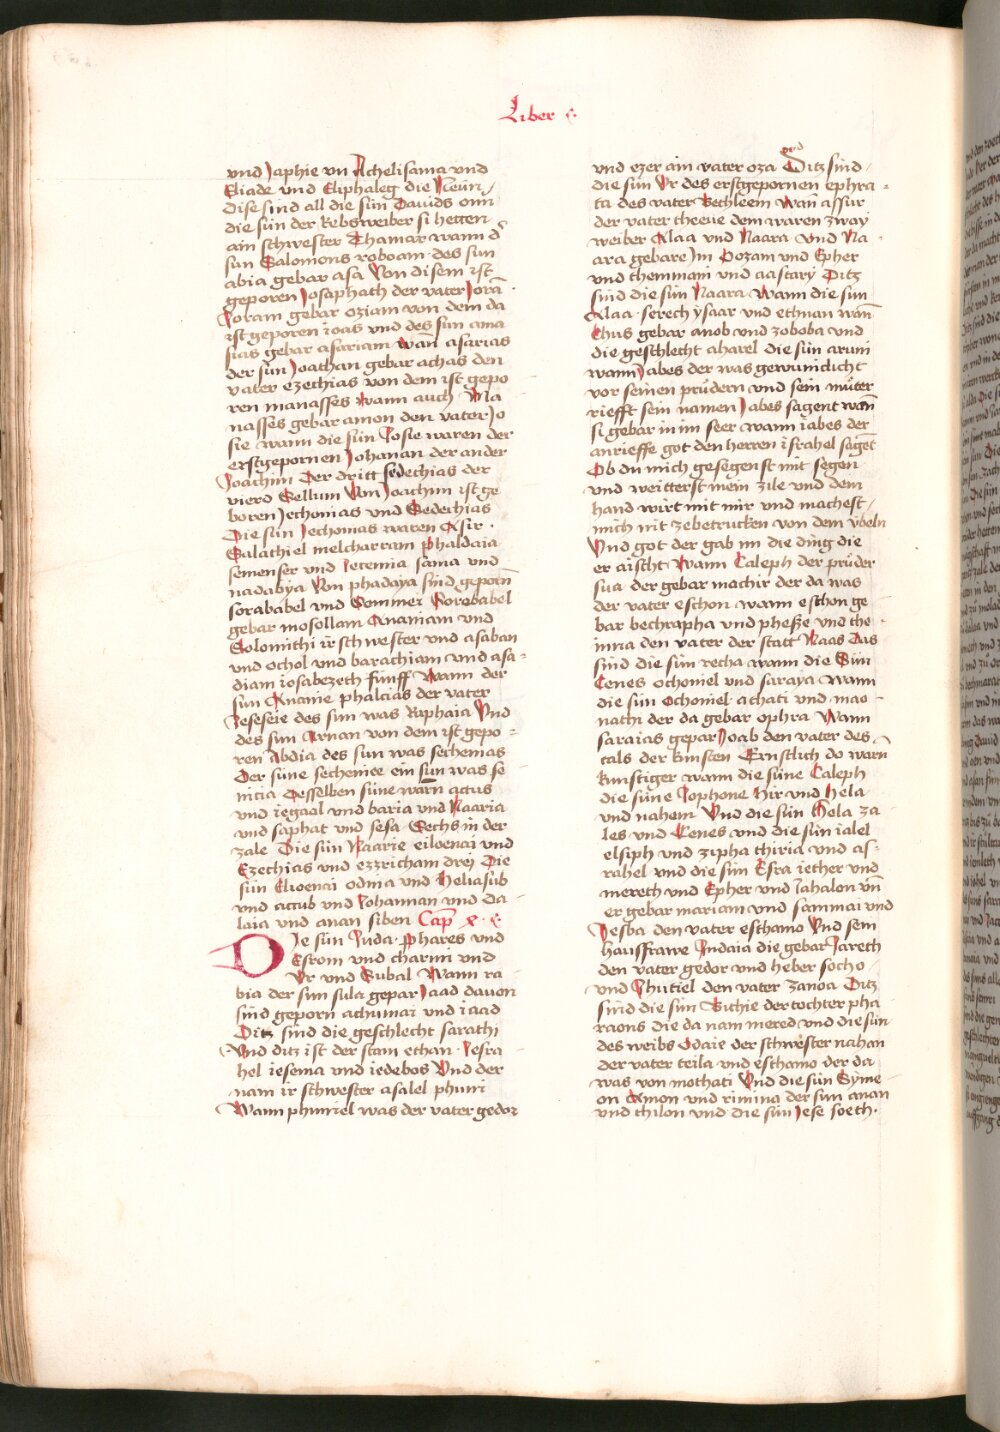 Liber
und Japhie un Achelisama und
Eliade und Eliphaleg die Neün
Dise sind all die sün Dauids onn
die sün der kebsweiber si hetten
ain schwester Thamar wann d
sun Salomons roboam des sun
abia gebar asa Von disem ist
geporen Josaphath der vater Jorā
Joram gebar oziam von dem da
ist geporen ioas und des sun ama
sias gebar asariam wan̄ asarias
der sun Joathan gebar achas den
vater ezechias von dem ist gepo
ren manasses wann auch Ma
nasses gebar amon den vater Jo
sie wann die sün Josie waren der
erstgepornen Johanan der ander
Joachim Der dritt sedechias der
vierd Sellum Von Joachim ist ge
boren Jechonias und Sedechias
Die sün Jechonias waren Asir ·
Salathiel melcharram phaldaia
semenser und Jecemia sama und
nadabya Von phadaya sind geporn̄
sorababel und Semmei Zorobabel
gebar mosollam Ananiam und
Solomithi ir schwester und asaban
und ochol und barachiam und asa
diam iosabezech fünff Wann der
sun Ananie phalcias der vater
Jeseseie des sun was Raphaia Und
des sun Arnan von dem ist gepo
ren Abdia des sun was sechemas
Der süne sechemee ein sun was se
meia Desselben süne warn actus
und iegaal und baria und Naaria
und saphat und sesa Sechs in der
zale Die sün Naarie eiloenai und
Ezechias und ezzricham drej Die
sün Elioenai odma und Heliasub
und accub und Johannan und da
laia und anan siben Cap
Die sün Juda · Phares und
Esrom und charmi und
Ur und Subal Wann ra
bia der sun sula gepar Jaad dauon
sind geporn achimai und iaad
Ditz sind die geschlecht sarathi
Und ditz ist der stam ethan · Jesra
hel iesema und iedebos Und der
nam ir schwester asalel phuni
Wann phuniel was der vater gedor
und ezer ain vater oza Ditz sind
die sün Ur des erstgepornen ephra
ta des vater Bethleem Wan assur
der vater thecue dem waren zway
weiber Alaa und Naara Und Na
ara gebare Im Oozam und Epher
und themmani und aastary Ditz
sind die sün Naara Wann die sun
Alaa · serech ysaar und ethnan wan̄
Chus gebar anob und zoboba und
die geschlecht aharel die sün arum
wann Jabes der was gewundicht
vor seinen prüdern und sein müter
riefft sein namen Jabes sagent wan̄
si gebar in im seer wann iabes der
anrieffe got den herren israhel saget
Ob du mich gesegenst mit segen
und weitterst mein zile und dem
hand wirt mit mir und machest
mich nit zebetrucken von dem ybeln
Und got der gab im die ding die
er aischt Wann Caleph der prüder
sua der gebar machir der da was
der vater eschon wann eschon ge
bar bechrapha und phesse und the
inna den vater der statt Naas Das
sind die sün recha wann die Sün
Cenes othoniel und saraya Wann
die sün Othoniel · achati und mao
nathi der da gebar ophra Wann
saraias gepar Joab den vater des
tals der kunsten Ernstlich do warn
kunstiger wann die süne Caleph
die süne Jophone Hir und hela
und nahem Und die sün Hela za
les und Cenes und die sün ialel
elsiph und zipha thiria und as
rahel und die sün Esra iether und
mereth und Epher und Jahalon un̄
er gebar mariam und sammai und
Jesba den vater eschamo Und sein
hausfrawe Judaia die gebar Jareth
den vater gedor und heber socho
und Jhutiel den vater zanoa Ditz
sind die sün Bithie der tochter pha
raons die da nam mered und die sün
des weibs Odaie der schwester nahan
der vater teila und eschamo der da
was von mothati Und die sün Syme
on Amon und rimina der sun anan
und thilon und die sün Jese soeth ·